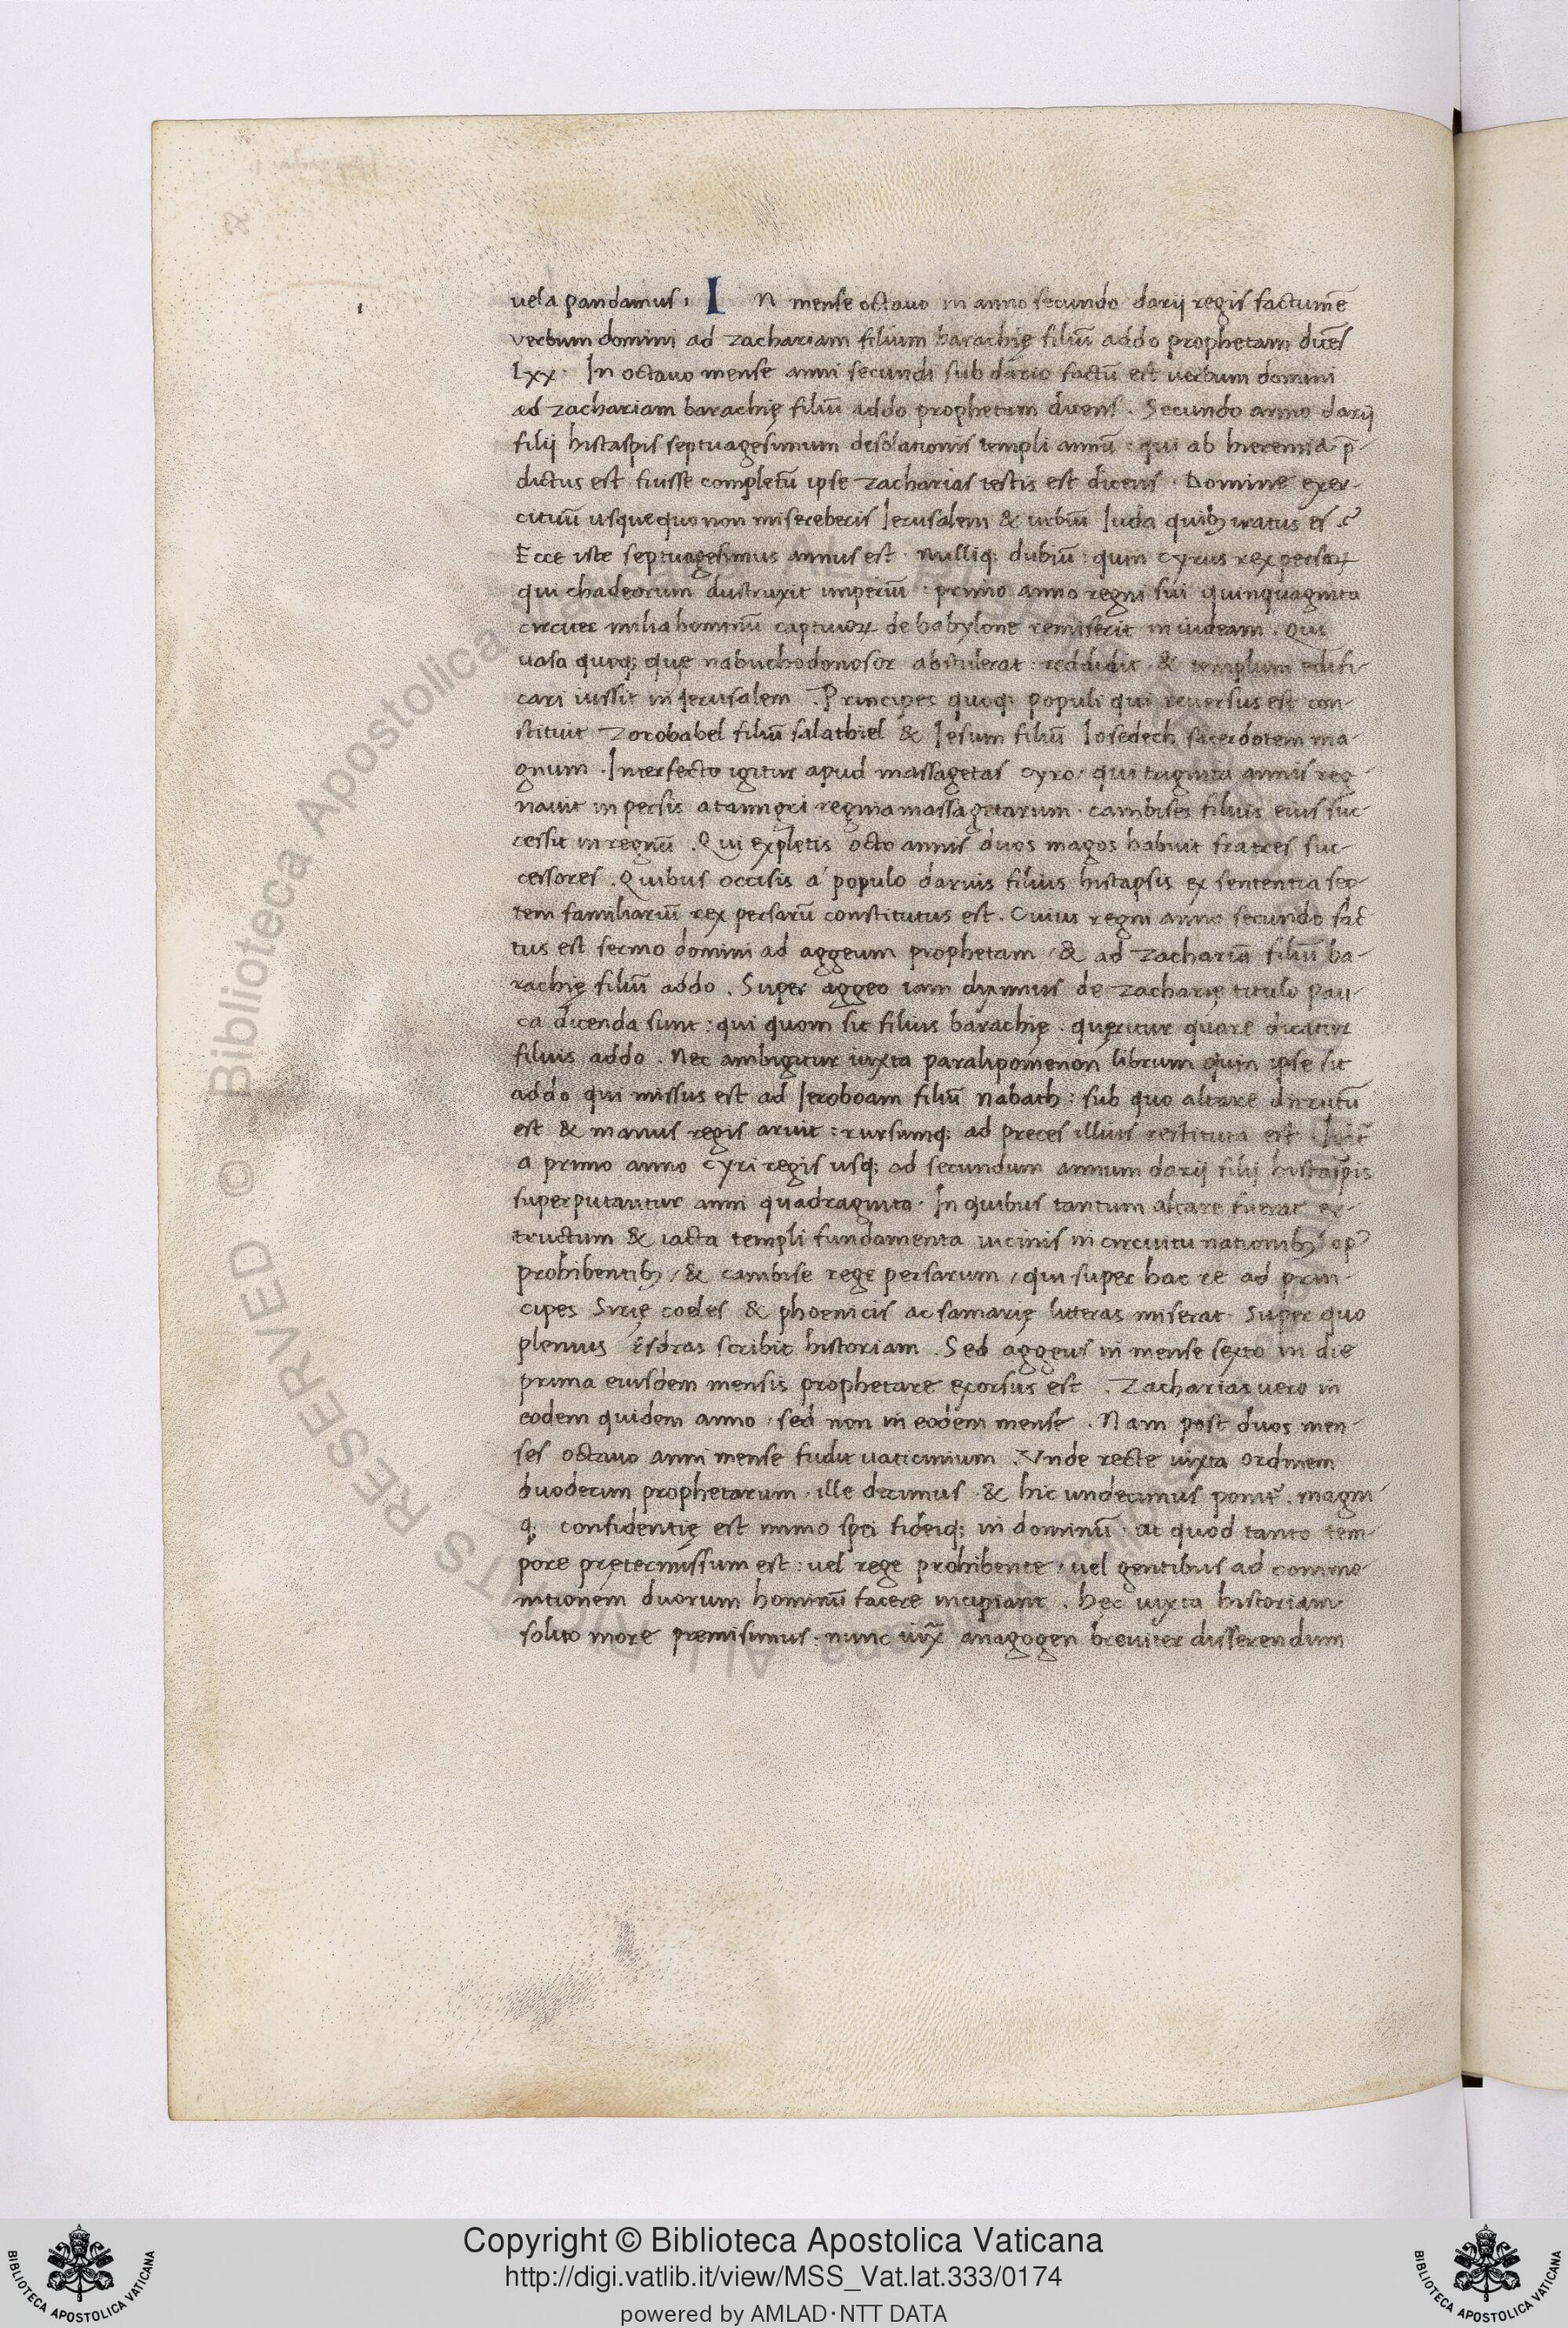 vela pandamus, IN mense octavo in anno secundo darij regis factum ē
verbum domini ad zachariam filium barachię filiū addo prophetam dicēs
Lxx. In octavo mense anni secundi sub dario factū est verbum domini
ad zachariam barachię filiū addo prophetam dicens. Secundo anno darij
filij histaspis septuagesimum desolationis templi annū: qui ab hieremia p̄-
dictus est fuisse completū ipse zacharias testis est dicens. Domine exer-
cituū usquequo non misereberis Ierusalem & urbiū Iuda quibꝫ iratus es.?
Ecce iste septuagesimus annus est. nulliqꝫ dubiū: quin cyrus rex persaꝝ
qui chadeorum dustruxit imperiū. primo anno regni sui quinquaginta
circiter milia hominū captivoꝝ de babylone remiserit in iudeam. Qui
vasa quoqꝫ quę nabuchodonosor abstulerat: reddidit & templum edifi-
cari iussit in Jerusalem. Principes quoqꝫ populi qui reversus est con-
stituit Zorobabel filiū salathiel & Iesum filiū Iosedech sacerdotem ma-
gnum. Interfecto igitur apud massagetas cyro: qui triginta annis reg-
navit in persis a regina massagetarum. cambises filius eius suc-
cessit in regnū. Qui expletis octo annis duos magos habuit fratres suc-
cessores. Quibus occisis a' populo darius filius histapsis ex sententia sep-
tem familiariū rex persarū constitutus est. Cuius regni anno secundo fac-
tus est sermo domini ad aggeum prophetam, & ad zachariā filiū ba-
rachię filiū addo. Super aggeo iam diximus de zacharię titulo pau-
ca dicenda sunt: qui quom sit filius barachię. quęritur quare dicatur
filius addo. Nec ambigitur iuxta paralipomenon librum quin ipse sit
addo qui missus est ad Ieroboam filiū nabath: sub quo altare dirrutū
est & manus regis aruit: rursumqꝫ ad preces illius restituta est.
a primo anno cyri regis usqꝫ ad secundum annum darij filij histaspis
superputantur anni quadraginta. In quibus tantum altare fuerat ex-
tructum & iacta templi fundamenta vicinis in circuitu nationibꝫ op'
prohibentibꝫ, & cambise rege persarum, qui super hac re ad prin-
cipes Sirię coeles & phoenicis ac samarię litteras miserat. Super quo
plenius Esdras scribit historiam. Sed aggeus in mense sexto in die
prima eiusdem mensis prophetare exorsus est. Zacharias vero in
eodem quidem anno, sed non in eodem mense. Nam post duos men-
ses octavo anni mense fudit vaticinium. Vnde recte iuxta ordinem
duodecim prophetarum, ille decimus. & hic undecimus ponit̃. magni-
qꝫ confidentię est immo spei fideiqꝫ in dominū. at quod tanto tem-
pore prętermissum est: vel rege prohibente, vel gentibus ad commo-
nitionem duorum hominū facere incipiant. hęc iuxta historiam
solito more premisimus: nunc iux̄ anagogen breviter disserendum
Copyright © Biblioteca Apostolica Vaticana
http://digi.vatlib.it/view/MSS_Vat.lat.333/0174
powered by AMLAD·NTT DATA
BIBLIOTECA APOSTOLICA VATICANA
BIBLIOTECA APOSTOLICA VATICANA